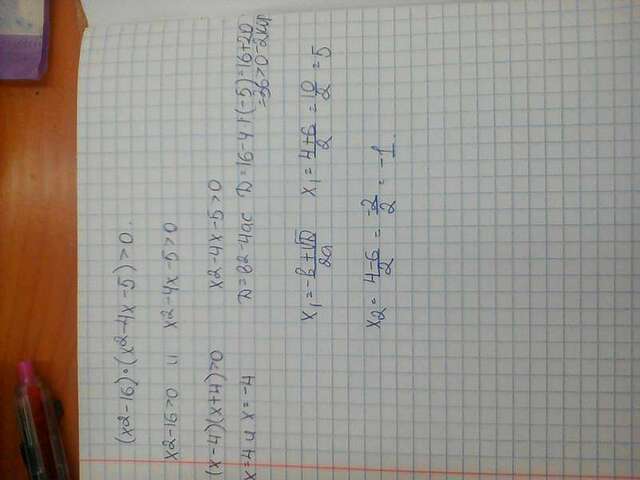 (x2-16)·(x2-4x-5)>0.
x2-16>0 и x2-4x-5>0
(x-4)(x+4)>0 x2-4x-5>0
x=4 и x=-4 D=B2-4ac D=16-4·1·(-5)=16+20
=36>0-2кор
x1=-b+√D/2a x1=4+6/2=10/2=5
x2=4-6/2=-2/2=-1.